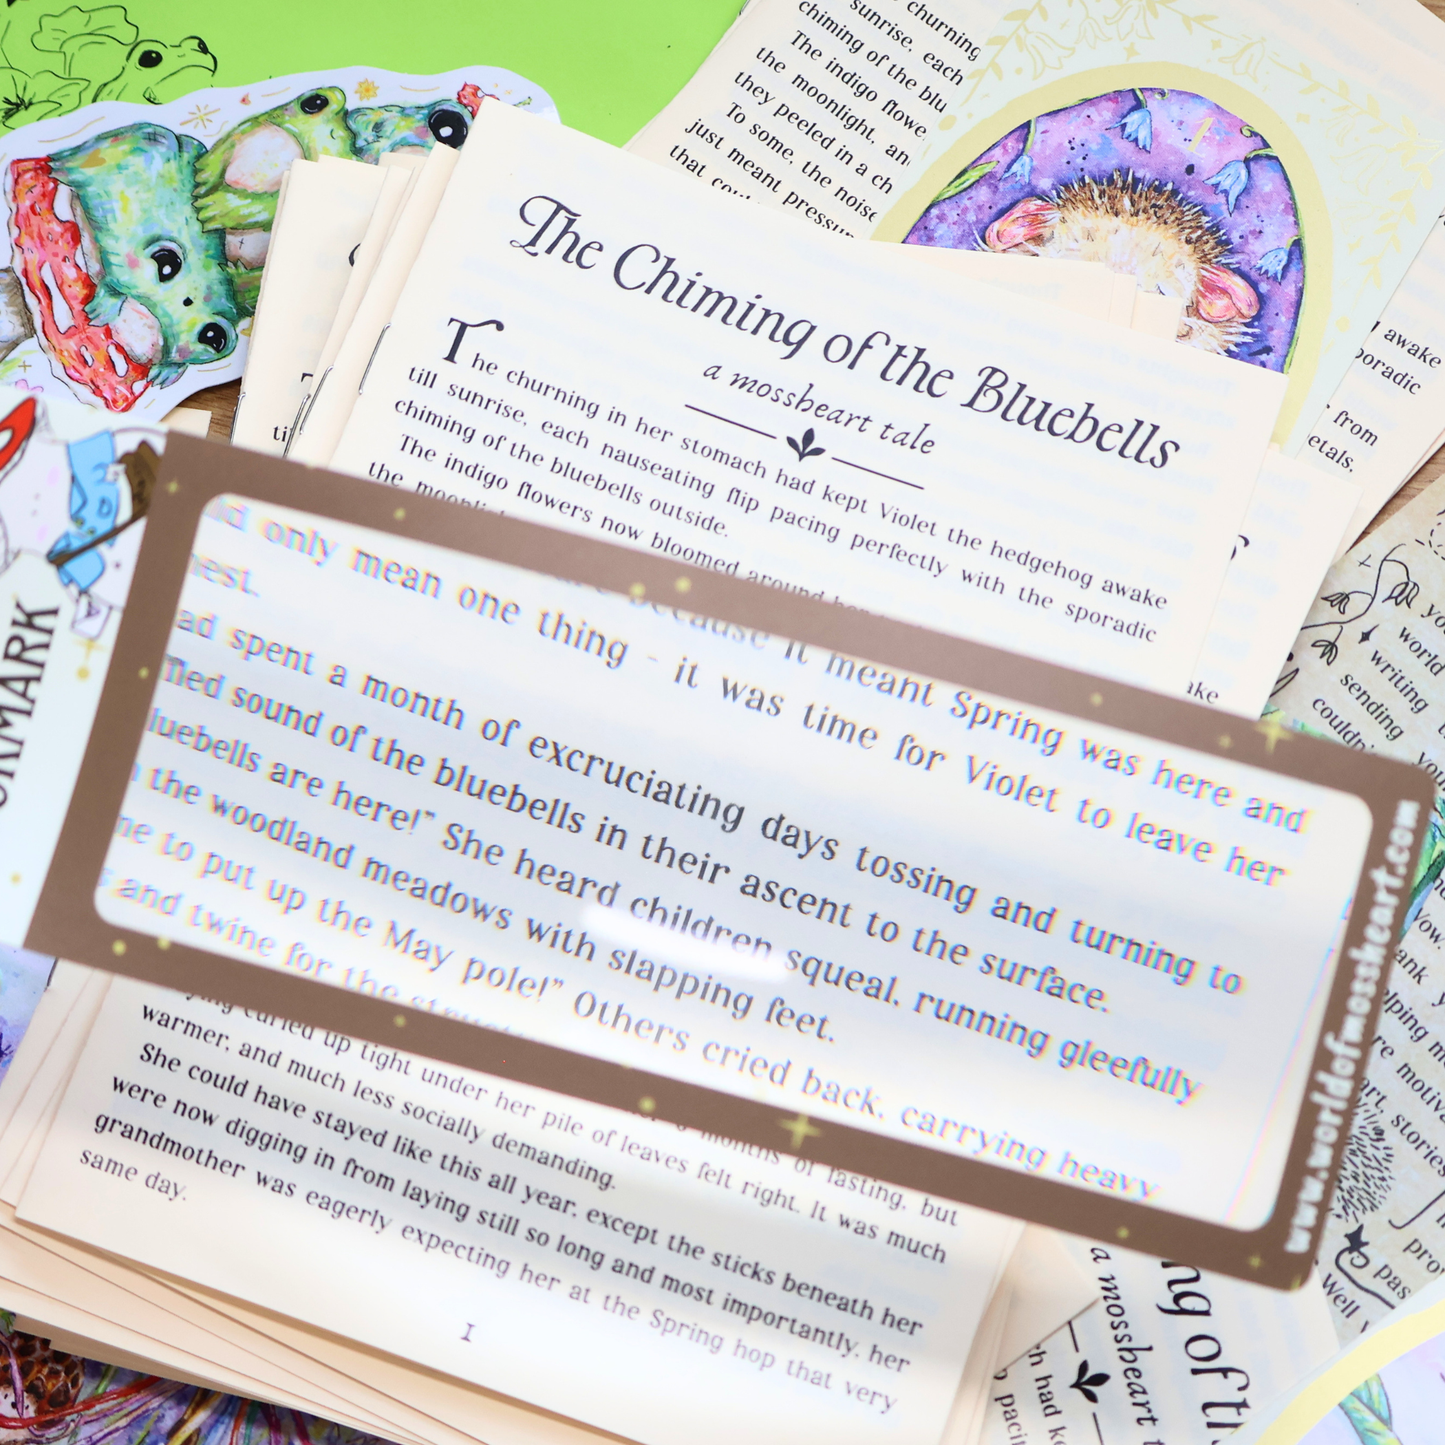 churning
sunrise, each
chiming of the blu
The indigo flowe
the moonlight, an
they peeled in a ch
To some, the noise
just meant pressur
that
The Chiming of the Bluebells
a mossheart tale
The churning in her stomach had kept Violet the hedgehog awake
till sunrise, each nauseating flip pacing perfectly with the sporadic
chiming of the bluebells outside.
The indigo flowers now bloomed around
the
because it meant Spring was here and
only mean one thing - it was time for Violet to leave her
nest.
ad spent a month of excruciating days tossing and turning to
fled sound of the bluebells in their ascent to the surface.
luebells are here!" She heard children squeal, running gleefully
the woodland meadows with slapping feet.
ne to put up the May pole!" Others cried back, carrying heavy
and twine for the
curled up tight under her pile of leaves felt right. It was much
months of fasting, but
warmer, and much less socially demanding.
She could have stayed like this all year, except the sticks beneath her
were now digging in from laying still so long and most importantly, her
grandmother was eagerly expecting her at the Spring hop that very
same day.
1
www.worldofmossheart.com
awake
poradic
from
etals.
ake
world
writing
sending
couldn
stories
Well
ng of th
a mossheart
h had ke
pacin